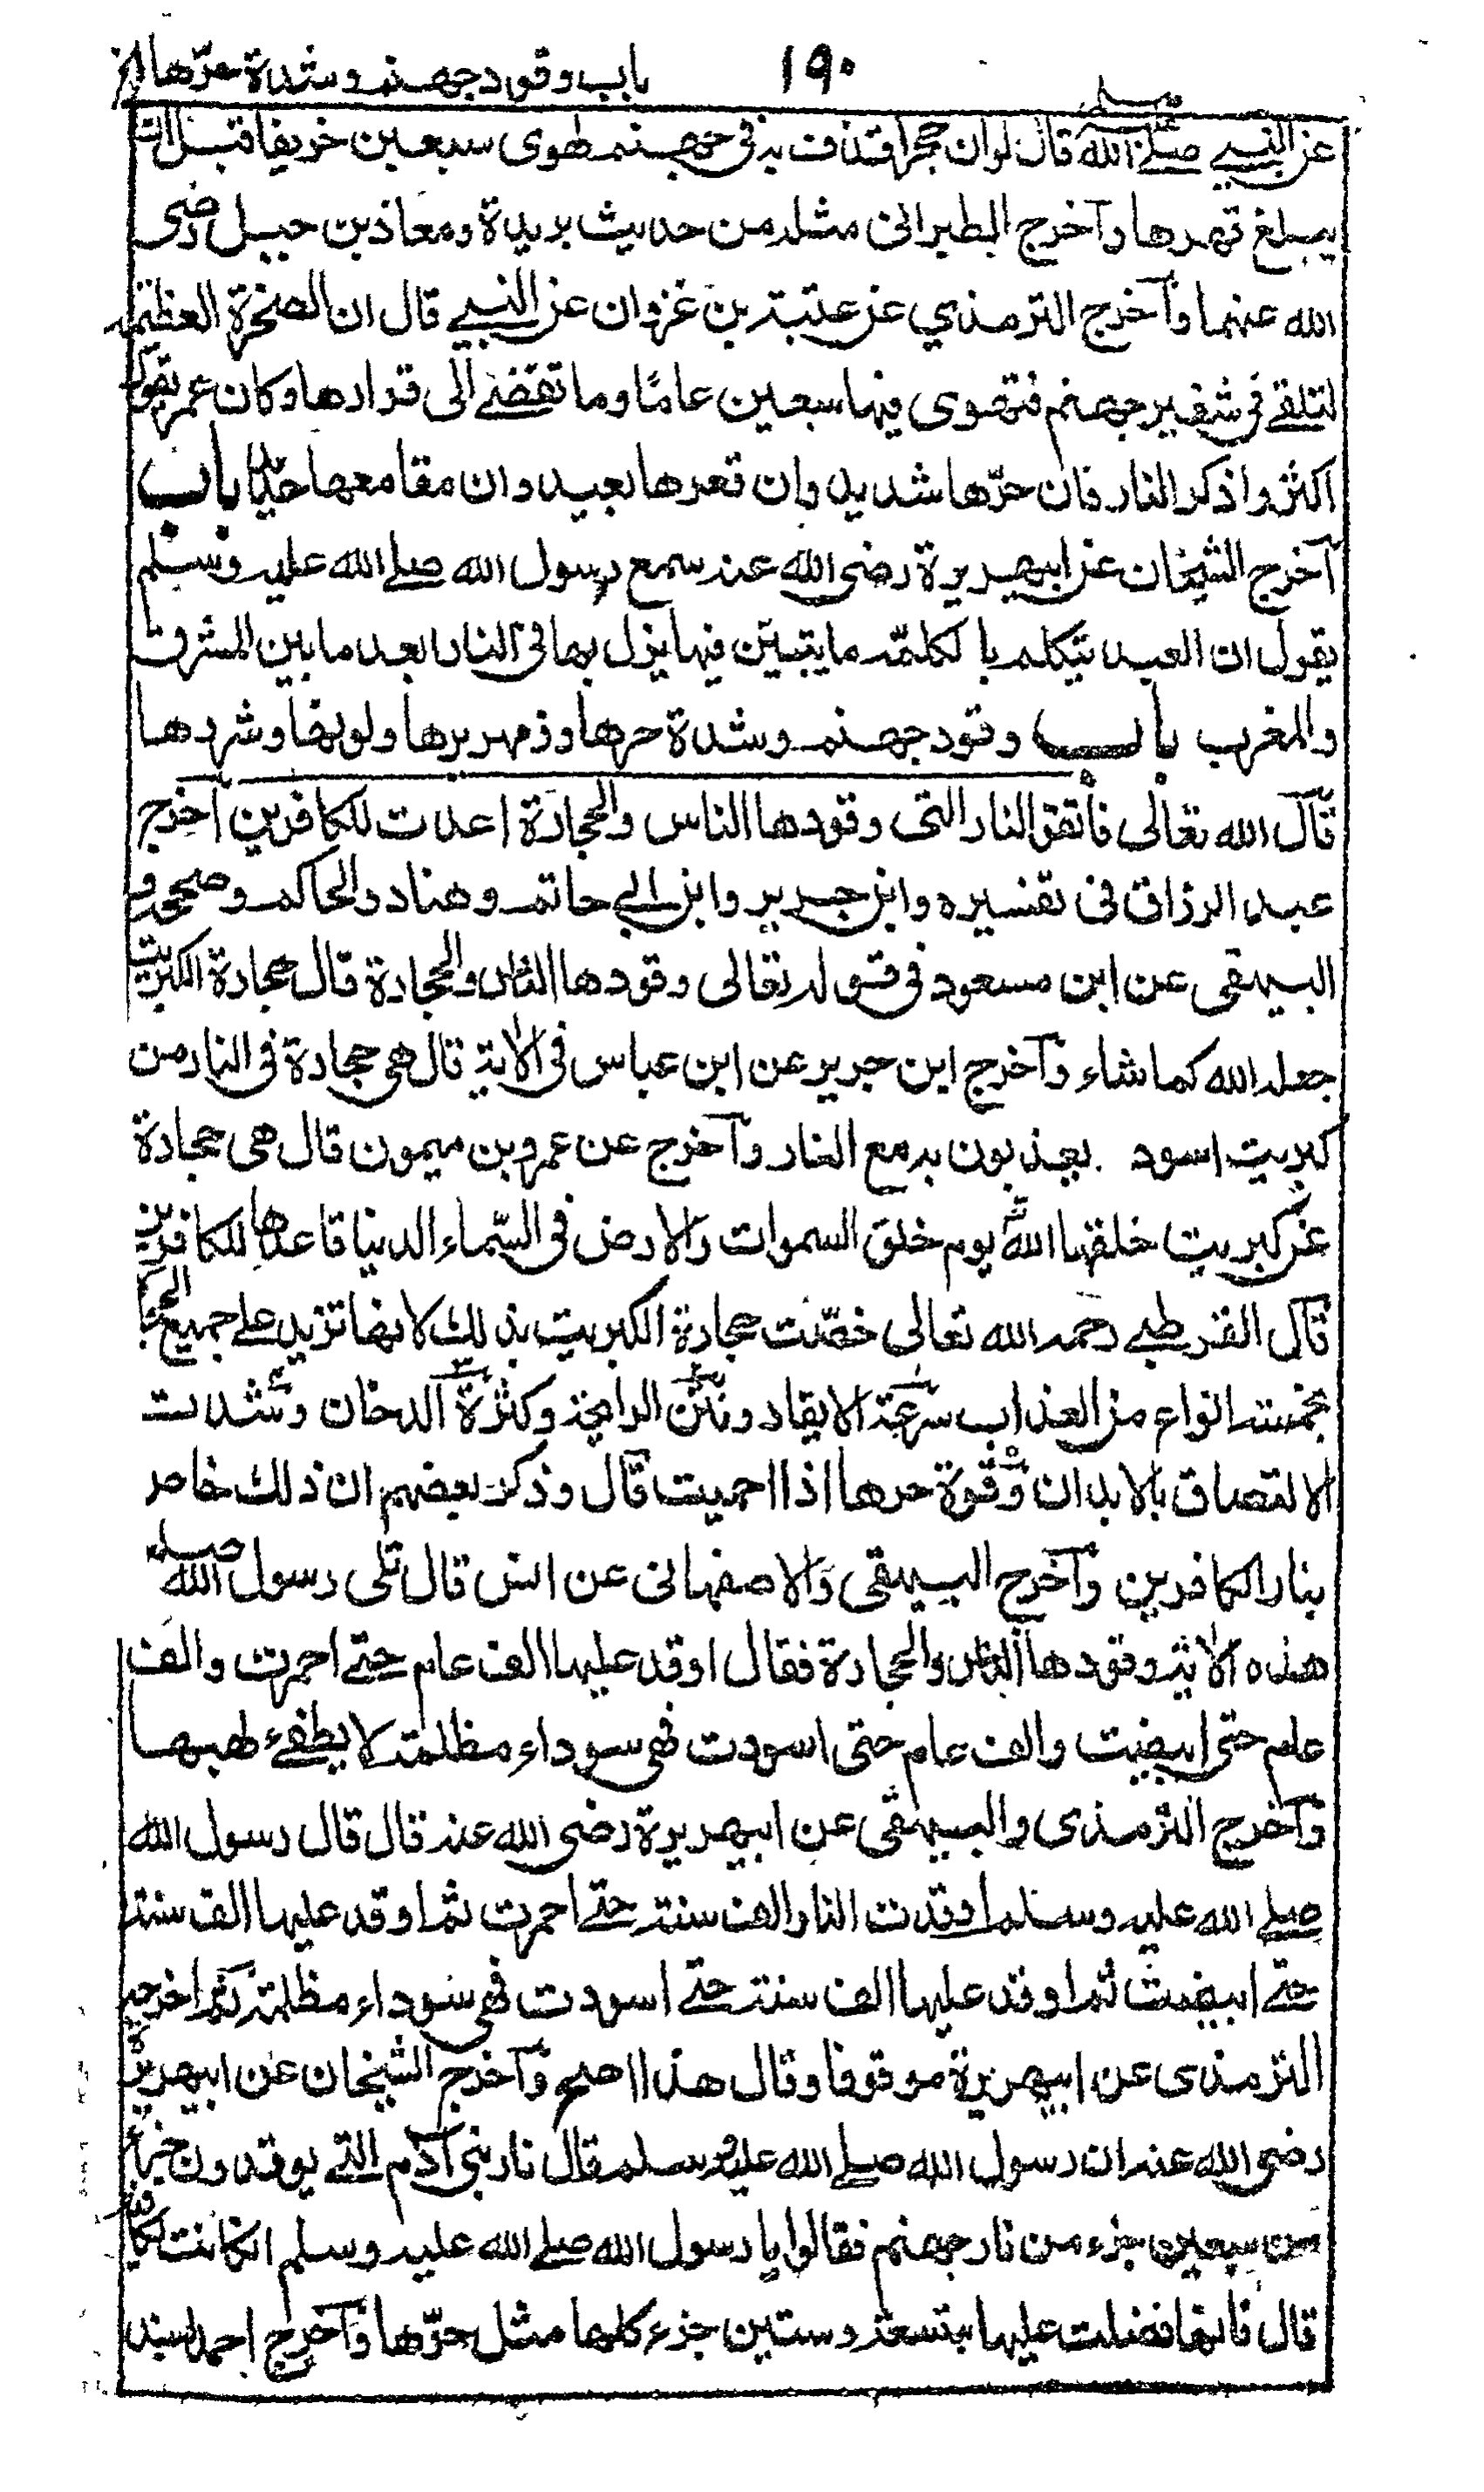 باب وقود جهنم وشدة حرّها الخ ١٩٠
عن النبي صلى الله عليه وسلم قال لو ان حجرا قذف به فى جهنم لهوى سبعين خريفا قبل ان
يبلغ قعرها وآخرج الطبرانى مثله من حديث بريدة ومعاذ بن جبل رضى
الله عنهما وآخرج الترمذي عن عتبة بن غزوان عن النبي قال ان الصخرة العظيمة
لتلقے فى شفير جهنم فتهوى فيها سبعين عامًا وما تفضے الى قرارها وكان عمر يقول
اكثروا ذكر النار فان حرّها شديد وان قعرها بعيد وان مقامعها حديد باب
آخرج الشيخان عن ابيهريرة رضى الله عنه سمع رسول الله صلے الله عليه وسلم
يقول ان العبد يتكلم بالكلمة ما يتبين فيها ينزل بها فى النار ابعد ما بين المشرق
والمغرب باب وقود جهنم وشدة حرها وزمهريرها ولونها وشررها
قال الله تعالى فاتقوا النار التى وقودها الناس والحجارة اعدت للكافرين آخرج
عبد الرزاق فى تفسيره وابن جرير وابن ابي حاتم وهناد والحاكم وصححه و
البيهقى عن ابن مسعود فى قوله تعالى وقودها الناس والحجارة قال حجارة الكبريت
جعله الله كما شاء وآخرج ابن جرير عن ابن عباس فى الاية قال هى حجارة فى النار من
كبريت اسود يعذبون به مع النار وآخرج عن عمرو بن ميمون قال هى حجارة
عن كبريت خلقها الله يوم خلق السموات والارض فى السّماء الدنيا فاعدها للكافرين
قال القرطبے رحمه الله تعالى خصّت حجارة الكبريت بذلك لانها تزيد علے جميع الحجا
بخمسة انواع من العذاب سرعة الايقاد ونتن الرايحة وكثرة الدخان وشدت
الالتصاق بالابدان وقوة حرها اذا احميت قال وذكر بعضهم ان ذلك خاص
بنار الكافرين وآخرج البيهقى والاصفهانى عن انس قال تلى رسول الله صلى
هذه الاية وقودها الناس والحجارة فقال اوقد عليها الف عام حتے احمرت والف
عام حتى ابيضت والف عام حتى اسودت فهى سوداء مظلمة لا يطفےء لهبها
وآخرج الترمذى والبيهقى عن ابيهريرة رضى الله عنه قال قال رسول الله
صلے الله عليه وسلم اوقدت النار الف سنة حتے احمرت ثم اوقد عليها الف سنة
حتے ابيضت ثم اوقد عليها الف سنة حتے اسودت فهى سوداء مظلمة ثم اخرجه
الترمذى عن ابيهريرة موقوفا وقال هذا اصح وآخرج الشيخان عن ابيهريرة
رضى الله عنه ان رسول الله صلے الله عليه وسلم قال نار بنى آدم التے يوقدون جزء
من سبعين جزء من نار جهنم فقالوا يا رسول الله صلے الله عليه وسلم ان كانت لكافية
قال فانها فضلت عليها بتسعة وستين جزء كلها مثل حرّها وآخرج احمد بسند